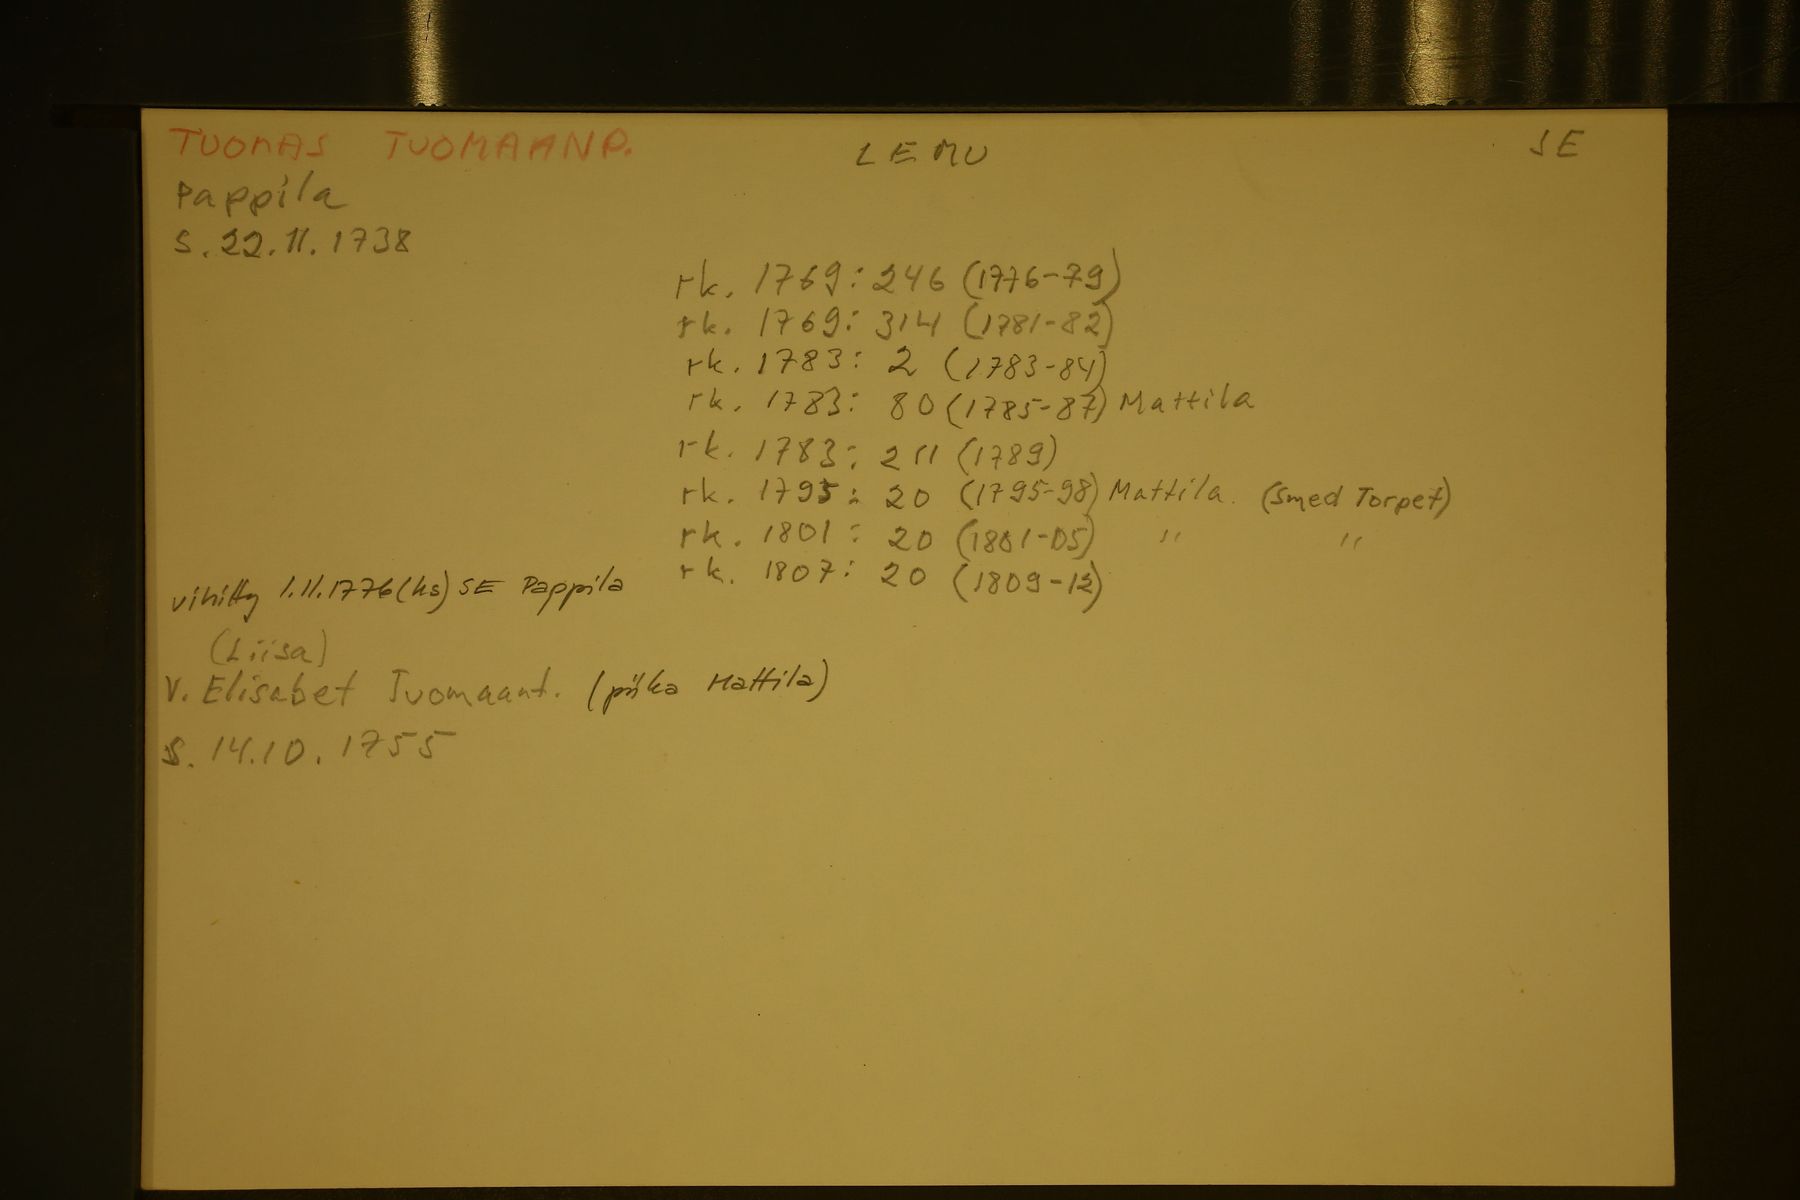 TUOMAS TUOMAANP. LEMU SE
Pappila
S. 22.11.1738
rk. 1769: 246 (1776-79)
rk. 1769: 314 (1781-82)
rk. 1783: 2 (1783-84)
rk. 1783: 80 (1785-87) Mattila
rk. 1783: 211 (1789)
rk. 1795: 20 (1795-98) Mattila. (Smed Torpet)
rk. 1801: 20 (1801-05) " "
rk. 1807: 20 (1809-12)
vihitty 1.11.1776 (ks) SE Pappila
(Liisa)
V. Elisabet Tuomaant. (piika Mattila)
S. 14.10.1755